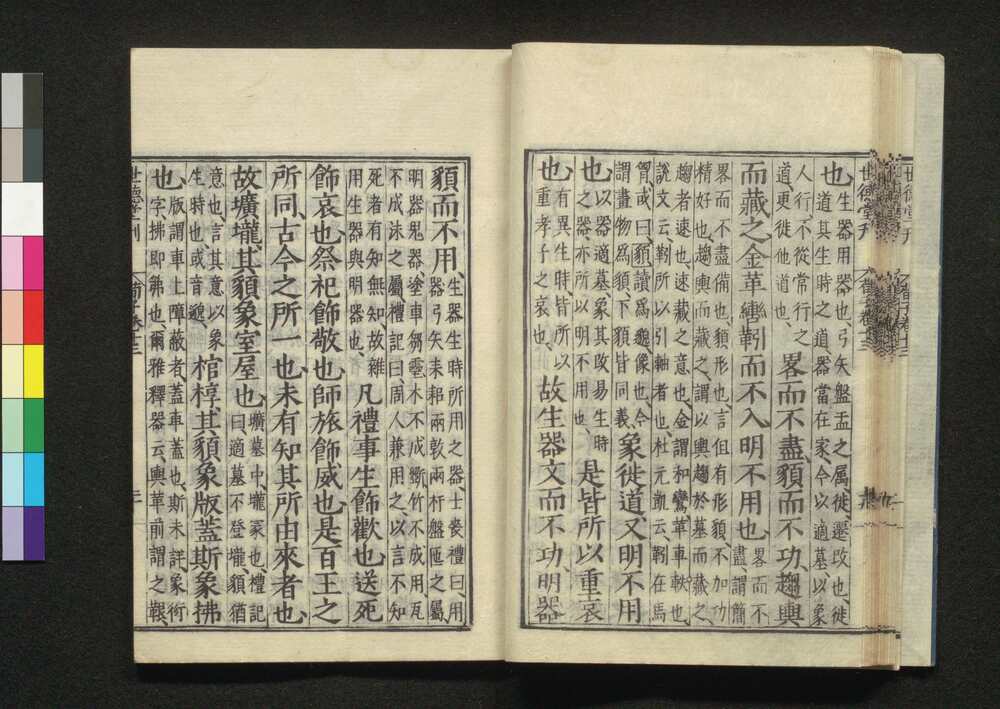 世德堂刊
荀子卷十三
也生器用器也弓矢盤盂之屬徙遷改也徙
道其生時之道器當在家今以適墓以象
人行不從常行之
道更徙他道也畧而不盡䫉而不功趨輿
而藏之金革轡靷而不入明不用也畧而不
盡謂簡
畧而不盡備也䫉形也言但有形䫉不加功
精好也趨輿而藏之謂以輿趨於墓而藏之
趨者速也速藏之意也金謂和鸞革車軼也
說文云靷所以引軸者也杜元凱云靷在馬
胷或曰䫉讀爲邈像也今
謂畫物爲䫉下䫉皆同義象徙道又明不用
也以器適墓象其改易生時
之器亦所以明不用也是皆所以重哀
也有異生時皆所以
重孝子之哀也故生器文而不功明器
䫉而不用生器生時所用之器士喪禮曰用
器弓矢耒耜兩敦兩杅盤匜之屬
明器鬼器塗車芻靈木不成斵竹不成用瓦
不成沬之屬禮記曰周人兼用之以言不知
死者有知無知故雜
用生器與明器也凡禮事生飾歡也送死
飾哀也祭祀飾敬也師旅飾威也是百王之
所同古今之所一也未有知其所由來者也
故壙壠其䫉象室屋也壙墓中壠冢也禮記
曰適墓不登壠䫉猶
意也言其意以象
生時也或音邈棺椁其䫉象版蓋斯象拂
也版謂車上障蔽者蓋車蓋也斯未詳象衍
字拂即茀也爾雅釋器云輿革前謂之鞎
世德堂刊